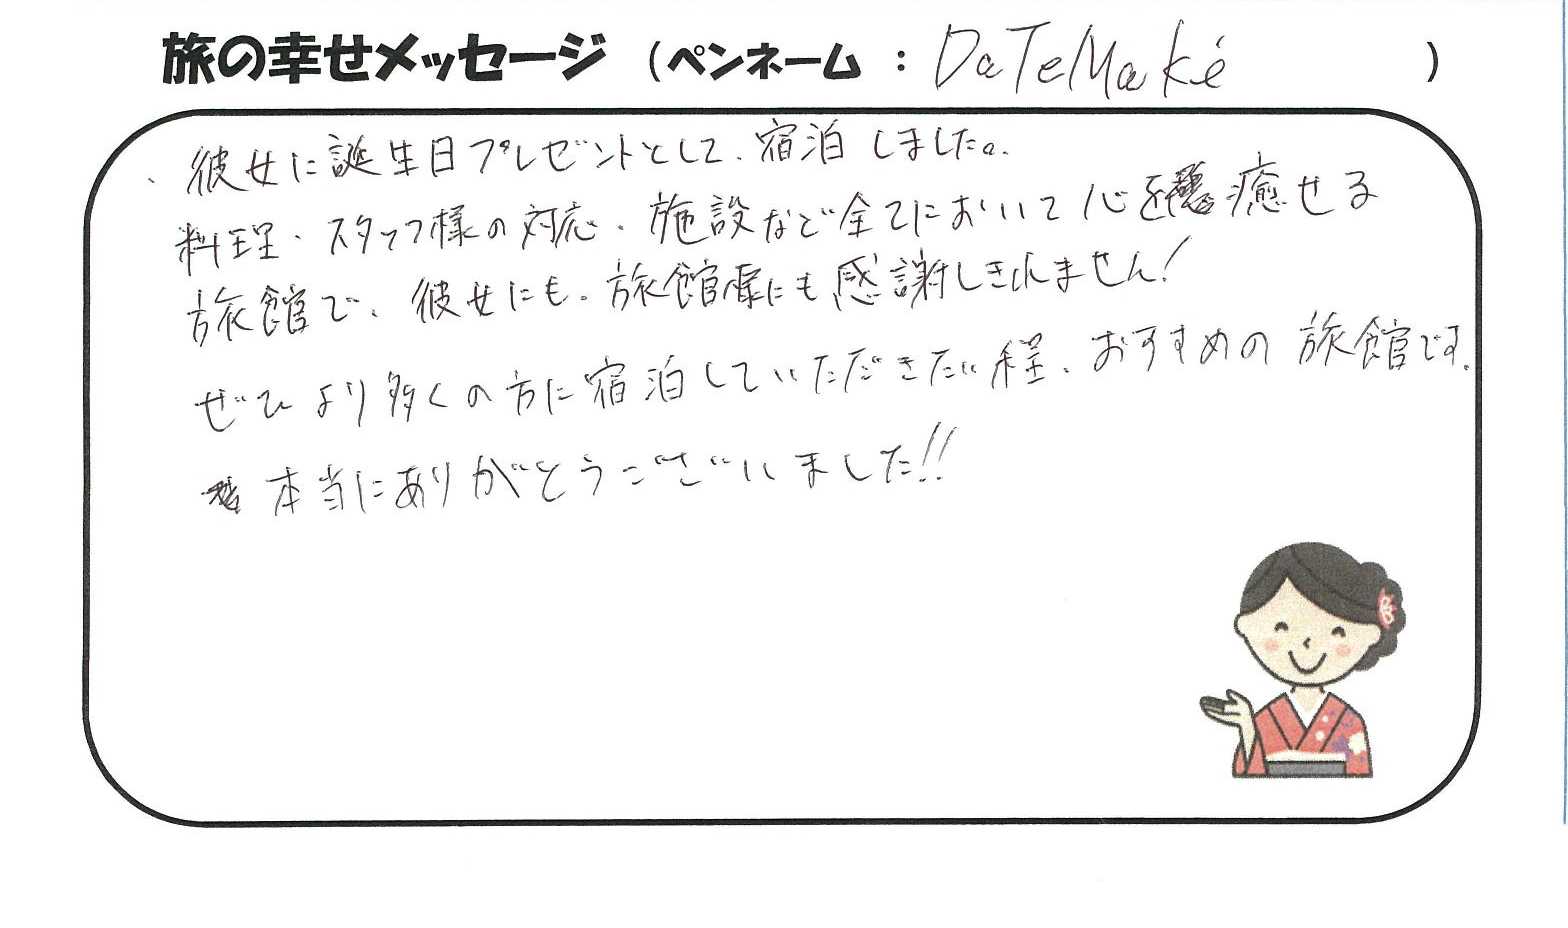 旅の幸せメッセージ (ペンネーム : DaTeMaKé )
、彼女に誕生日プレゼントとして、宿泊しました。
料理、スタッフ様の対応、施設など全てにおいて心を癒せる
旅館で、彼女にも、旅館様にも感謝しきれません!
ぜひより多くの方に宿泊していただきたい程、おすすめの旅館です。
本当にありがとうございました!!